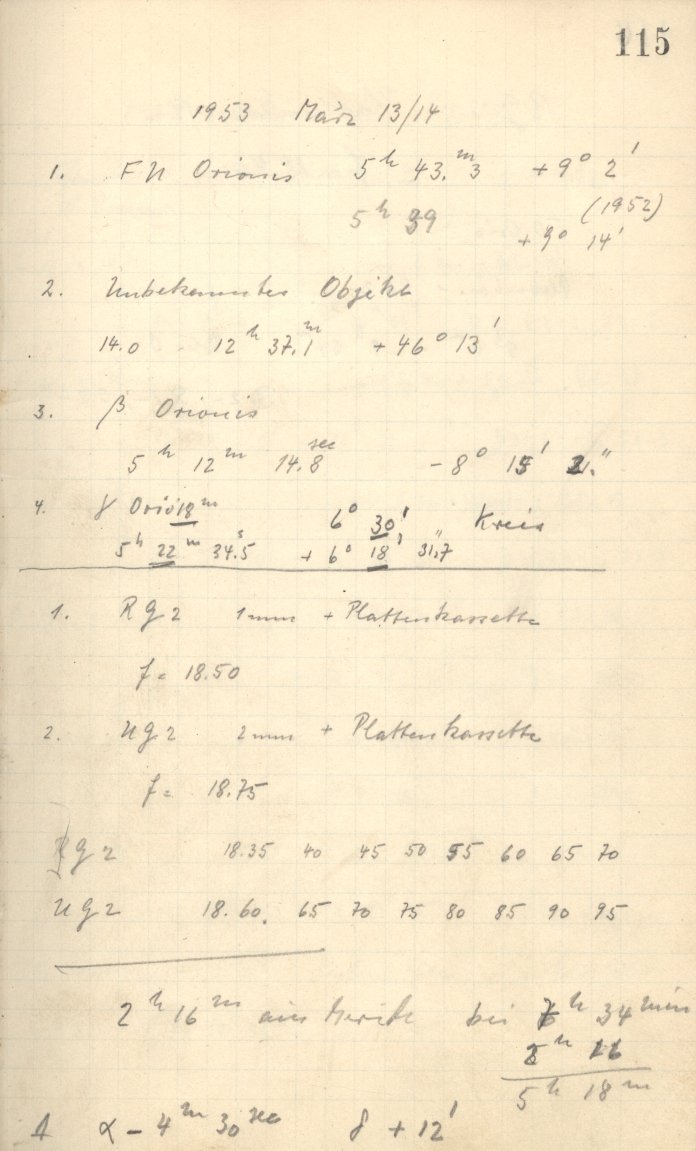 115
1953 März 13/14
1. FU Orionis 5h 43.m3 +9° 2'
(1952)
5h 39 +9° 14'
2. Unbekanntes Objekt
14.0 12h 37.1m +46° 13'
3. β Orionis
5h 12m 14.8sec -8° 15' 21."
4. γ Orio 18m 6° 30' Kreis
5h 22m 34.s5 + 6° 18' 31."7
1. RG2 1mm + Plattenkassette
f = 18.50
2. UG2 2mm + Plattenkassette
f = 18.75
RG2 18.35 40 45 50 55 60 65 70
UG2 18.60. 65 70 75 80 85 90 95
2h 16m bei 7h 34min
2h 16
5h 18m
Δ α - 4m 30sec δ + 12'